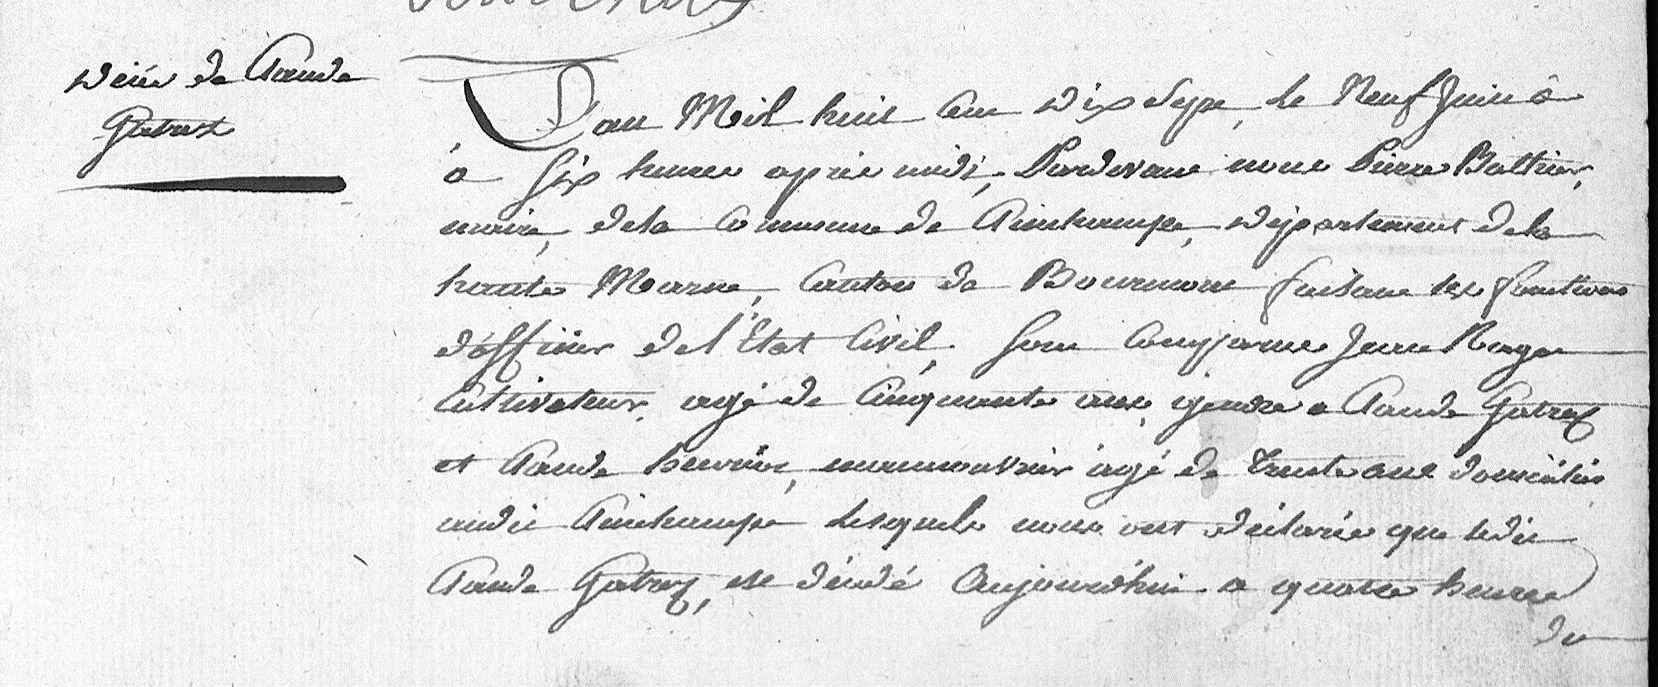 Décès de Claude
Gatrez
L'an Mil huit cent Dix Sept, le Neuf Juin à
à Six heures après midi, Pardevant nous Pierre
maire, dela Commune de Clinchamps, Département dela
haute Marne, Canton de Bourmont faisant les fonctions
d'officier del'Etat Civil, Sont Comparus Jean
Cultivateur, agé de Cinquante ans, gendre a Claude Gatrez
et Claude manouvrier agé de Trente ans domiciliés
audit Clinchamps lesquels nous ont déclaré que ledit
Claude Gatrez, est décédé Aujourd'hui a quatre heures
du